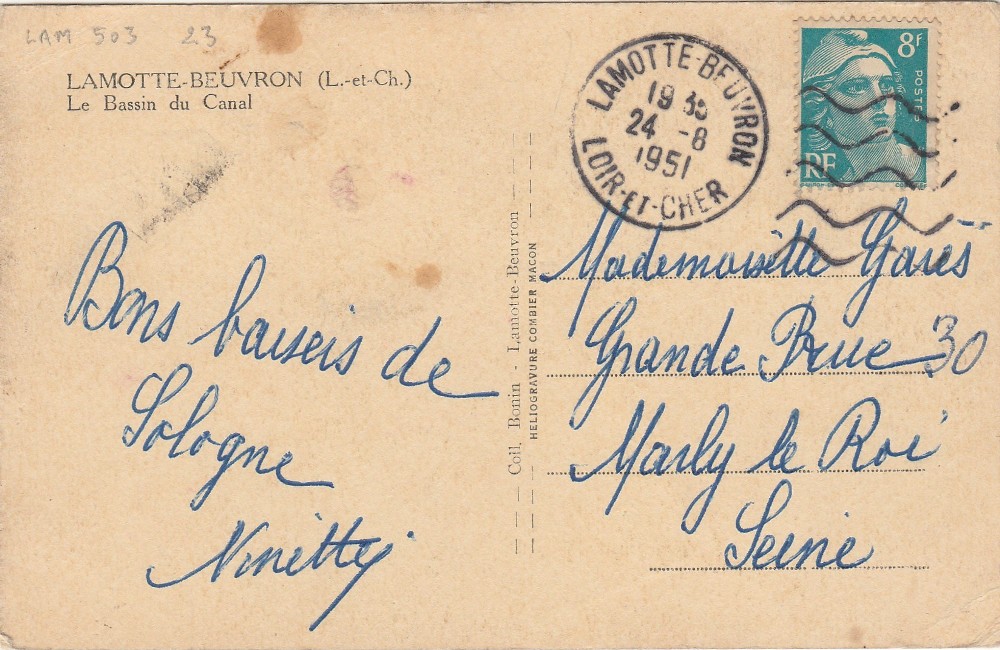 LAM 503 23
LAMOTTE-BEUVRON (L.-et-Ch.)
Le Bassin du Canal
Bons baisers de
Sologne
Coll. Bonin - Lamotte-Beuvron
HELIOGRAVURE COMBIER MACON
LAMOTTE-BEUVRON
24 -8
1951
LOIR-ET-CHER
8F
POSTES
RF
Mademoiselle
Grande Rue 30
Marly le Roi
Seine